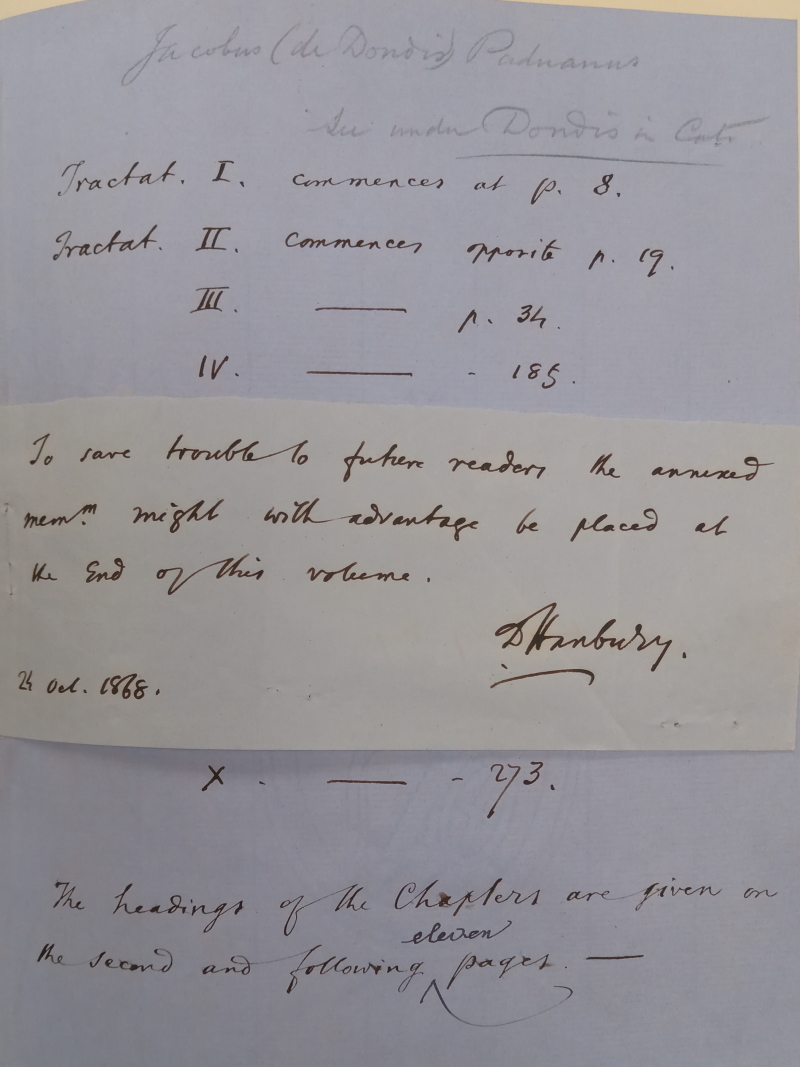 Jacobus (de Dondis) Paduanus
See under Dondis in Cat.
Tractat. I. commences at p. 8.
Tractat. II. commences opposite p. 19.
III. —— p. 34.
IV. —— - 185.
To save trouble to future readers the annexed
mem.m might with advantage be placed at
the End of this volume.
DHanbury.
24 Oct. 1868.
X. —— - 273.
The headings of the Chapters are given on
eleven
the second and following pages. —